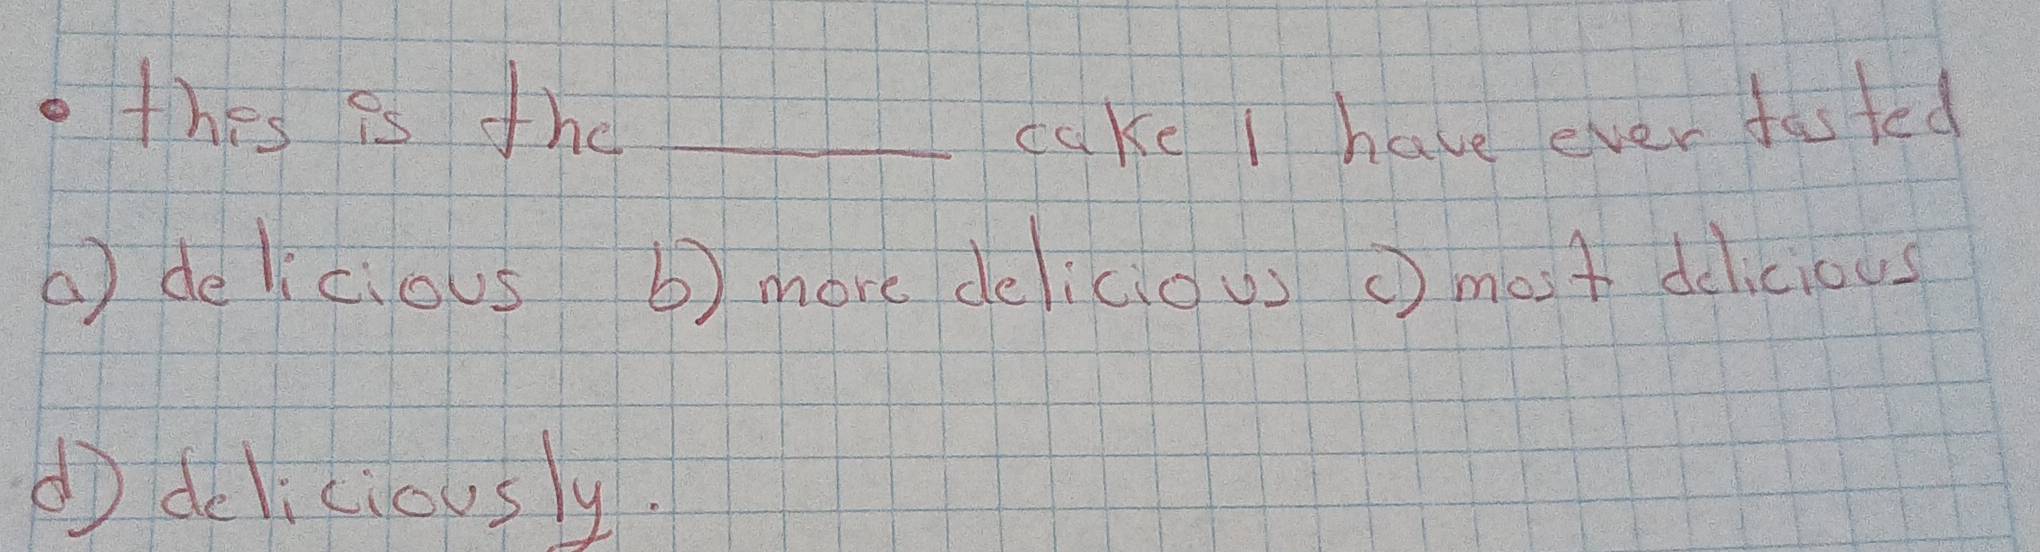 • this is the ________ cake I have ever tasted
a) delicious b) more delicious c) most delicious
d) deliciously.